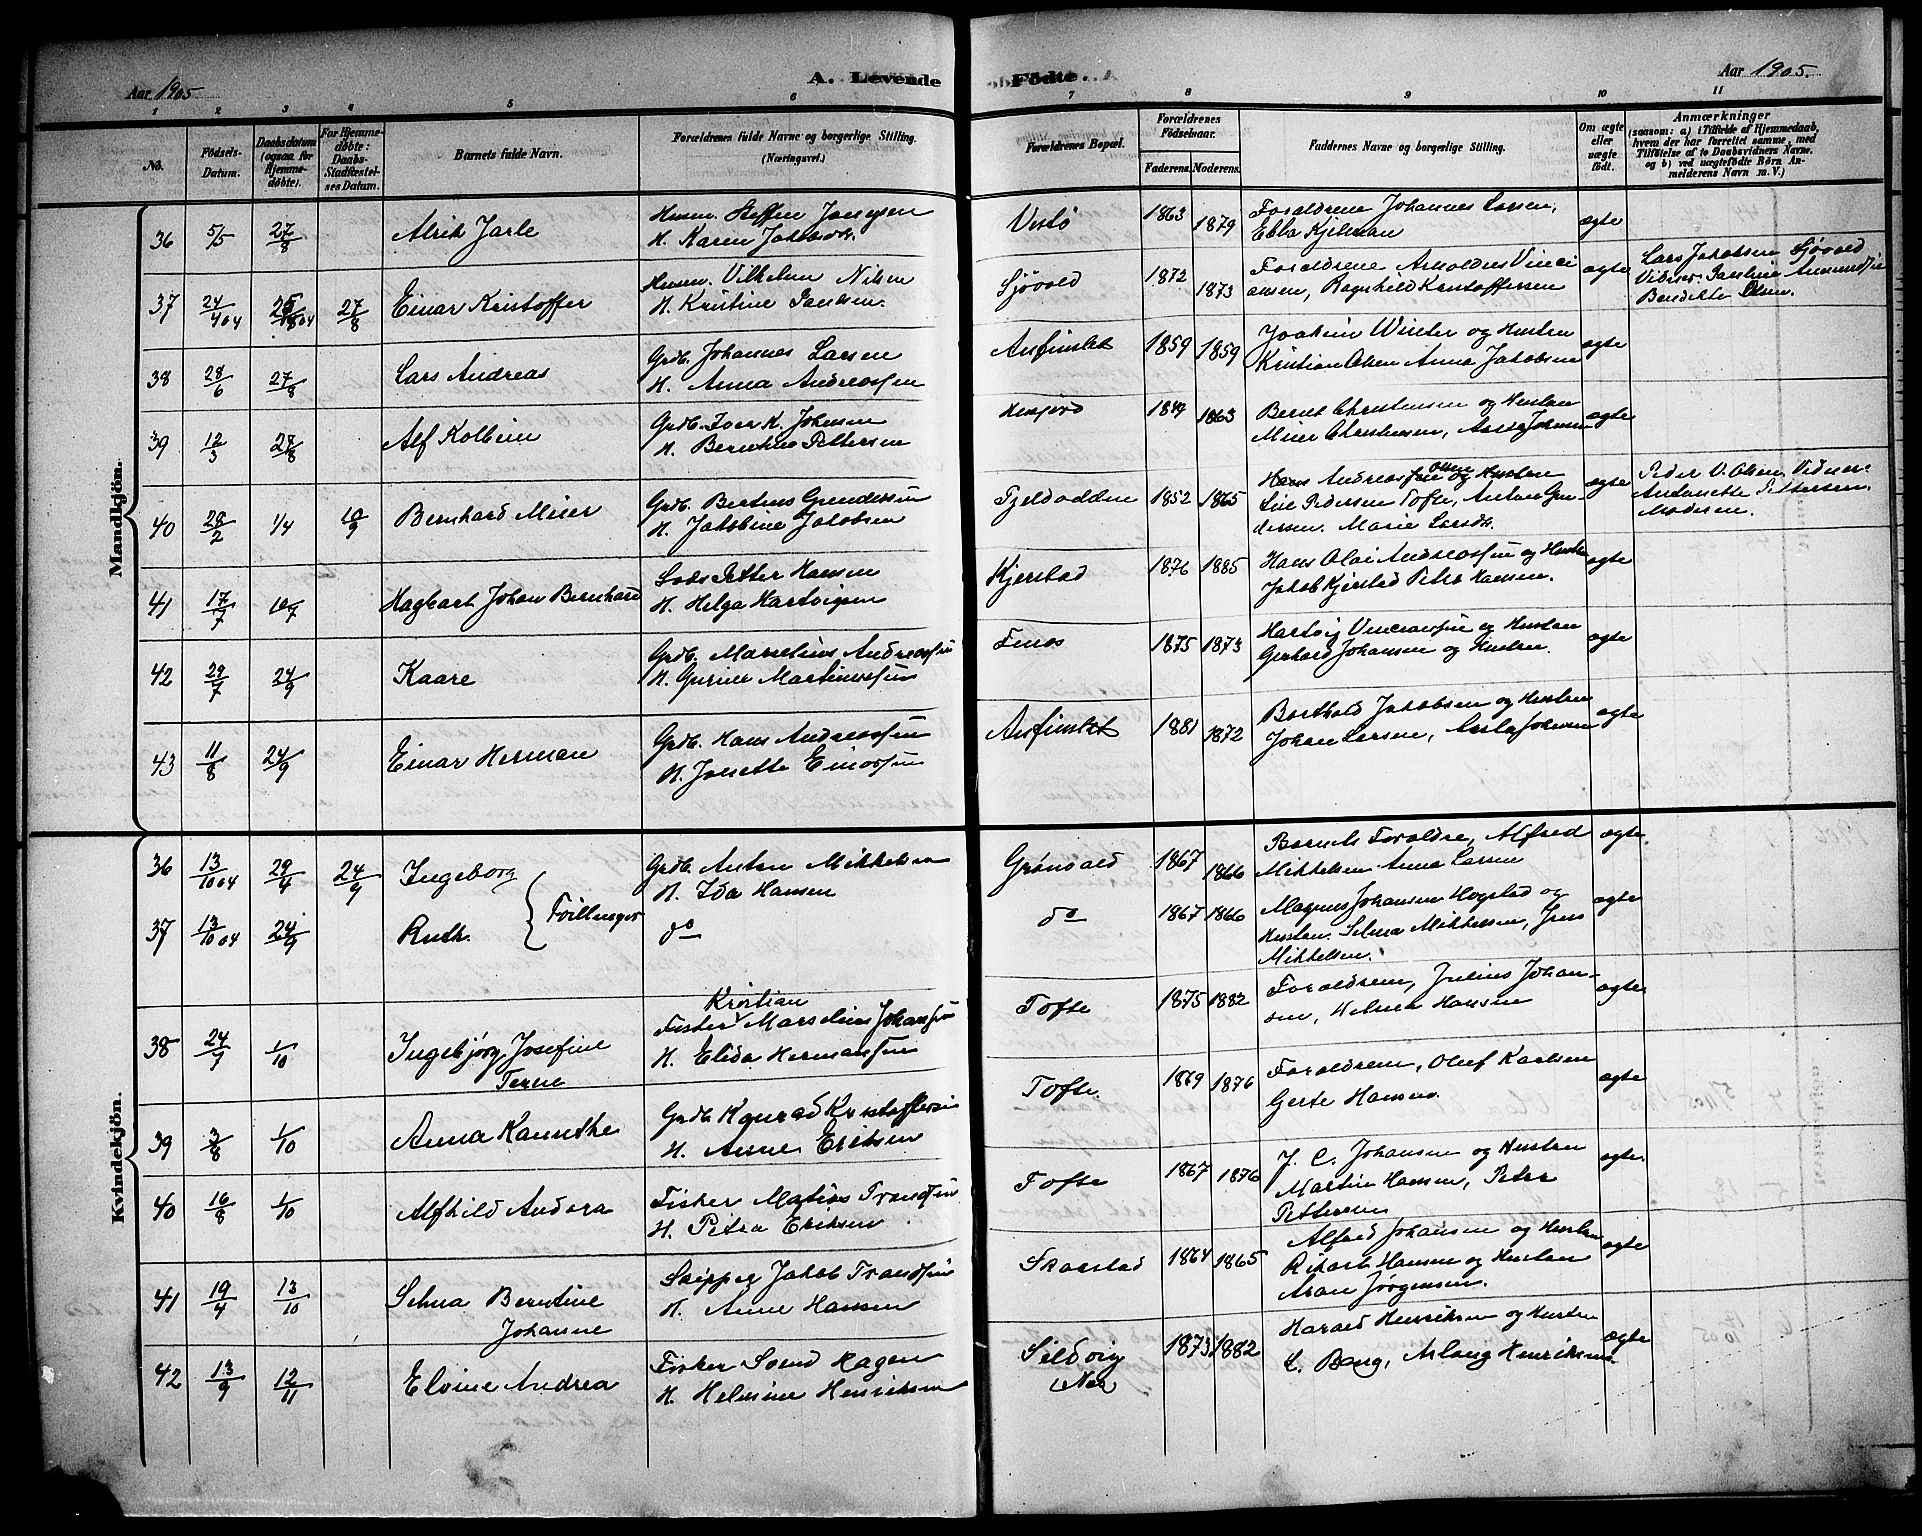 Aar 1905
A. Levende
Födte.
Aar 1905.
1 2 3 4 5 6 7 8 9 10 11
No.
Födsels-Datum.
Daabsdatum (ogsaa for Hjemmedøbte).
For Hjemmedøbte: Daabs-Stadfæstelses Datum.
Barnets fulde Navn.
Forældrenes fulde Navne og borgerlige Stilling.
(Næringsvei.)
Forældrenes Bopæl.
Forældrenes Födselsaar.
Faderens. Moderens.
Faddernes Navne og borgerlige Stilling.
Om ægte eller uægte født.
Anmærkninger
(saasom: a) i Tilfælde af Hjemmedaab,
hvem der har forrettet samme, med
Tilføielse af to Daabsvidners Navne.
og b) ved uægtefødte Börn Anmelderens Navn m. V.)
Mandkjön.
36 5/5 27/8 Alrik Jarle
Husm. Steffen Jørgsen
H. Karen Jakobsdt.
Vestö 1863 1879
Forældrene Johannes Larsen,
Ebba Kjelman
ægte
37 24/4 04 25/8 04 27/8 Einar Kristoffer
Husm. Vilhelm Nilsen
H. Kristine
Sjövold 1872 1873
Forældrene, Arnoldus
Ragnhild Kristoffersen
ægte
Lars Jakobsen Sjövold
Benedikte Olsen.
38 28/6 27/8 Lars Andreas
Grdb. Johannes Larsen
H. Anna Andreassen
Anfinslet 1859 1859
Joakim Winter og Hustru
Kristian Olsen Anna Jakobsen
ægte
39 12/3 27/8 Alf Kolbein
Grdb. Iver K. Johnsen
H. Bernhine Pettersen
1863
Bernt Christensen og Hustru
Meier Christensen, Johnsen
ægte
40 28/2 1/4 10/9 Bernhard Meier
Grdb. Berteus Gundersen
H. Jakobine Jakobsen
Fjeldodden 1852 1865
Hans Andreas Olsen og Hustru
Pedersen Tofte, Anton Gundersen. Marie Larsdt.
ægte
Peder V. Olsen,
Antonette Pettersen
Moderen.
41 17/7 Hagbart Johan Bernhard
Lods Petter Hansen
H. Helga Hartvigsen
Kjerstad 1876 1885
Hans Olai Andreassen og Hustru
Jakob Kjerstad Petra Hansen.
ægte
42 29/7 24/9 Kaare
Grdb. Marselius Andreassen
H. Gurine Martinussen
Finos 1875 1873
Hartvig og Hustru
Gerhard Johansen og Hustru.
ægte
43 11/8 24/9 Einar Herman
Grdb. Hans Andreassen
H. Jonette Einarsen
Anfinslet 1881 1872
Barthold Jakobsen og Hustru
Johan Larsen, Johnsen
ægte
Kvindekjön.
36 13/10 04 29/4 24/9 Ingeborg
Tvillinger
Grdb. Anton Mikkelsen
H. Ida Hansen
Grönvold 1867 1866
Barnets Forældre, Alfred
Mikkelsen Anna Larsen
ægte
37 13/10 04 24/9 Ruth.
do
do 1867 1866
Magnus Johansen Hogstad og
Hustru. Selma Mikkelsen, Jens
Mikkelsen.
ægte
38 24/7 1/10 Ingebjørg Josefine
Terne
Kristian
Fisker Marselius Johansen
H. Elida Hermansen
Tofte 1875 1882
Forældrene, Julius Johansen, Helma Hansen
ægte
39 3/8 1/10 Anna Kannthe
Grdb. Konrad Kristoffersen
H. Anne Eriksen
Tofte. 1869 1876
Forældrene, Oluf Karlsen
Gerte Hansen.
ægte
40 16/8 1/10 Alfhild Andora
Fisker Matias Trondsen
H. Petra Eriksen
Tofte 1867 1876
J. C. Johansen og Hustru
Martin Hansen, Peter
Pettersen
ægte
41 19/4 13/10 Selma Berntine
Johanne
Skipper Jakob Trondsen
H. Anne Hansen
Skarstad 1864 1865
Alfred Johansen og Hustru
Rikart Hansen og Hustru
Aron Jørgensen.
ægte
42 13/9 12/11 Elvine Andrea
Fisker Svend Hagen
H. Helmine Henriksen
Sildvig
1873 1882
Harald Henriksen og Hustru
L. Bang, Aslaug Henriksen
ægte